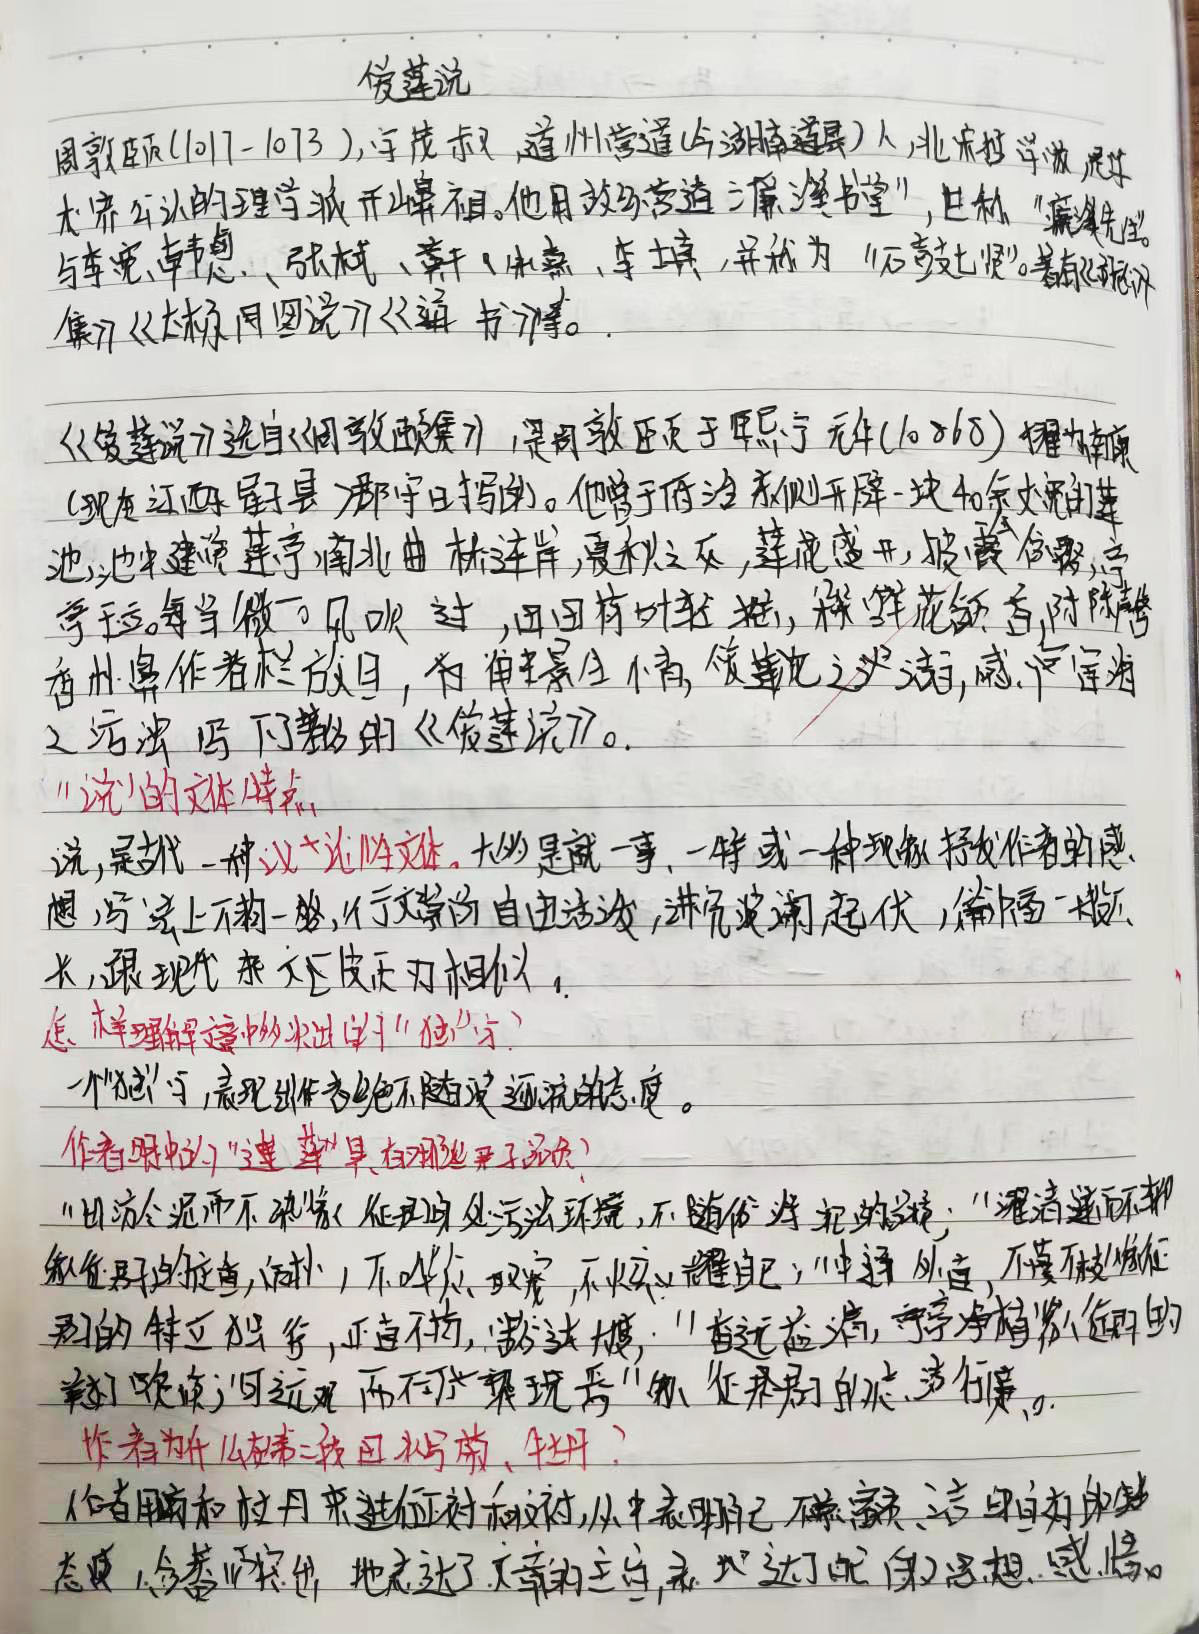 爱莲说
周敦颐(1017-1073),字茂叔,道州营道(今湖南道县)人,北宋哲学家,是学
术界公认的理学派开山鼻祖。他曾 营道"濂溪书堂",世称"濂溪先生"。
与李宽、韩愈、张栻、黄干、朱熹、李士真,并称为"石鼓七贤"。著有《周元公
集》《太极图说》《通书》等。
《爱莲说》选自《周敦颐集》,是周敦颐于熙宁元年(1068)擢为南康
(现在江西星子县)郡守日写的。他曾于府治东侧开辟一块40余丈宽的莲
池,池中建 莲亭,南北曲桥连岸,夏秋之交,莲花盛开,披霞含露,亭
亭玉立。每当微风吹过,田田荷叶轻摇, 鲜花 香,阵阵清
香扑鼻。作者 栏放目, 景生情,爱莲花之 洁,感 宦海
之污浊写下了著名的《爱莲说》。
"说"的文体特点
说,是古代一种议论性文体。大多是就一事、一物或一种现象抒发作者的感
想,写法上不拘一格,行文崇尚自由活泼,讲究波澜起伏,篇幅一般不
长,跟现代杂文 为相似。
怎样理解文章中多次出现的"独"字?
一个"独"字,表现出作者绝不随波逐流的态度。
作者眼中的"莲"具有哪些君子品质?
"出淤泥而不染"象征君子身处污浊环境,不随俗浮沉的品质;"濯清涟而不妖"
象征君子的庄重,质朴,不哗众取宠,不炫耀自己;"中通外直,不蔓不枝"象征
君子的特立独行,正直不苟,豁达大度;"香远益清,亭亭净植"象征君子的
美好 ;"可远观而不可亵玩焉"象征君子的 。
作者为什么在第二段回来写菊、牡丹?
作者用菊和牡丹来进行正衬和反衬,从中表明自己不慕富贵、洁身自好的
态度,含蓄而突出地表达了文章的主旨,表达了 的思想感情。